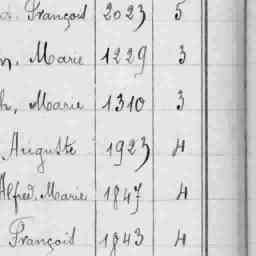 François 2023 5
Marie 1229 3
h, Marie 1310 3
Auguste 1923 4
Alfred, Marie 1847 4
François 1843 4